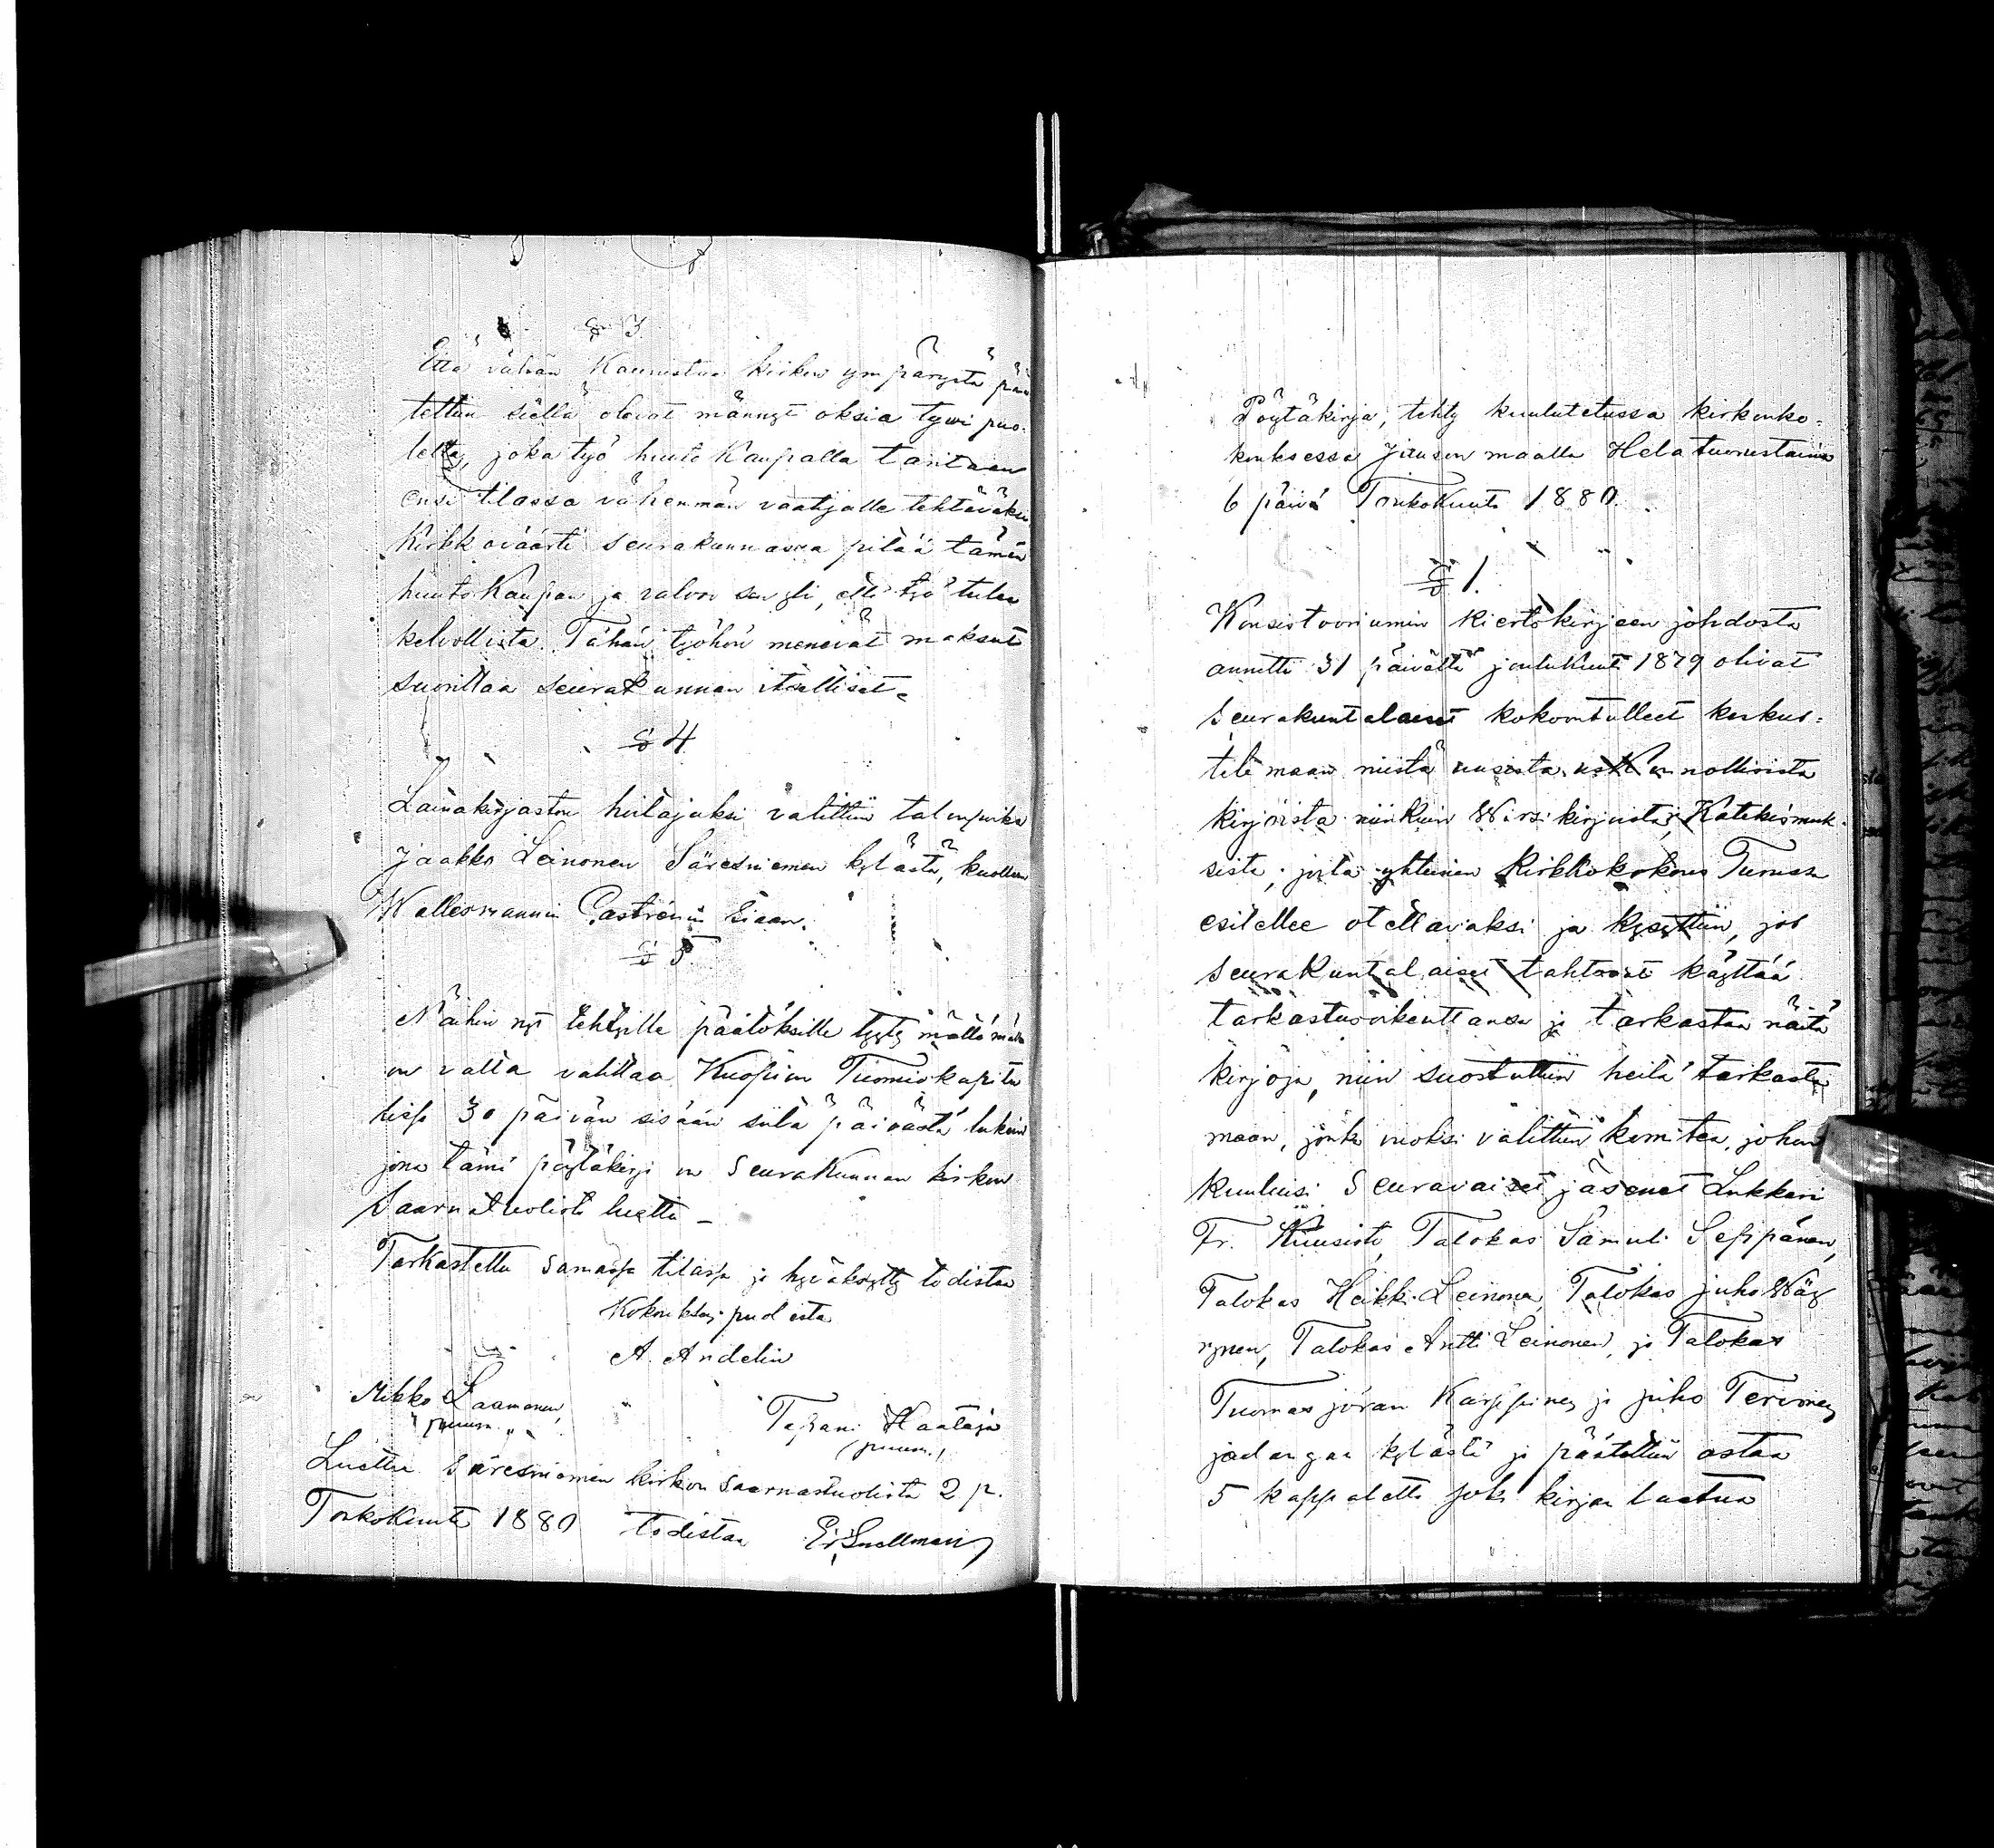 § 3
Että vähän kaunistaa kirkon ympärystä pää
tettiin siellä olevat männyt oksia tywi puo-
lelta, joka työ huuto Kaupalla taritaan
ensi tilassa vähemmän vaatijalle tehtäväksi
Kirkkoväärti seurakunnassa pitää tämän
huuto Kaupan ja valvoo sen yli, että työ tulee
kelvollista. Tähän työhön menevät maksut
suorittaa seurakunnan itselliset.
§ 4
Lainakirjaston hoitajaksi valittiin talonpoika
Jaakko Leinonen Säresniemen kylästä, kuolleen
Wallesmannin Castrénin siaan.
§ 5
Näihin nyt tehtyille päätöksille tyytymättömällä
on valta valittaa Kuopion Tuomiokapitu
lissa 30 päivän sisään siitä päivästä lukein
jona tämä pöytäkirja on Seurakunnan kirkon
Saarnatuolista luettu –
Tarkastettu samassa tilassa ja hyväksytty todistaa
Kokouksen puolesta
A. Andelin
Mikko Laamanen,
puum.
Tapani Haataja
(puum.)
Luettu Säresniemen kirkon saarnastuolista 2 p.
Toukokuuta 1880 todistaa E. Snellman
Pöytäkirja, tehty kuulutetussa kirkonko-
kouksessa Jitusen maalla Helatuorustaina
6 päivä Toukokuuta 1880.
§ 1.
Konsistooriumin kiertokirjeen johdosta
annettu 31 päivältä joulukuut 1879 olivat
Seurakuntalaiset kokoontulleet keskus-
telemaan niistä uusista uskKonnollisista
kirjoista niinkuin Wirsikirjoista, Katekismuk-
sista, joita yhteinen Kirkkokokous Turussa
esitellee otettavaksi ja kysyttiin, jos
Seurakuntalaiset tahtovat käyttää
tarkastusoikeuttansa ja tarkastaa näitä
kirjoja, niin suostuttiin heitä tarkasta
maan, jonka vuoksi valittiin komitea, johon
kuuluisi Seuravaiset jäsenet Lukkari
Fr. Kuusisto, Talokas Samuli Seppänen,
Talokas Heikki Leinonen, Talokas juho Wäy
rynen, Talokas Antti Leinonen, ja Talokas
Tuomas jöran Karppinen ja juho Tervonen
ja päätettiin ostaa
5 kappaletta joka kirjan laatua